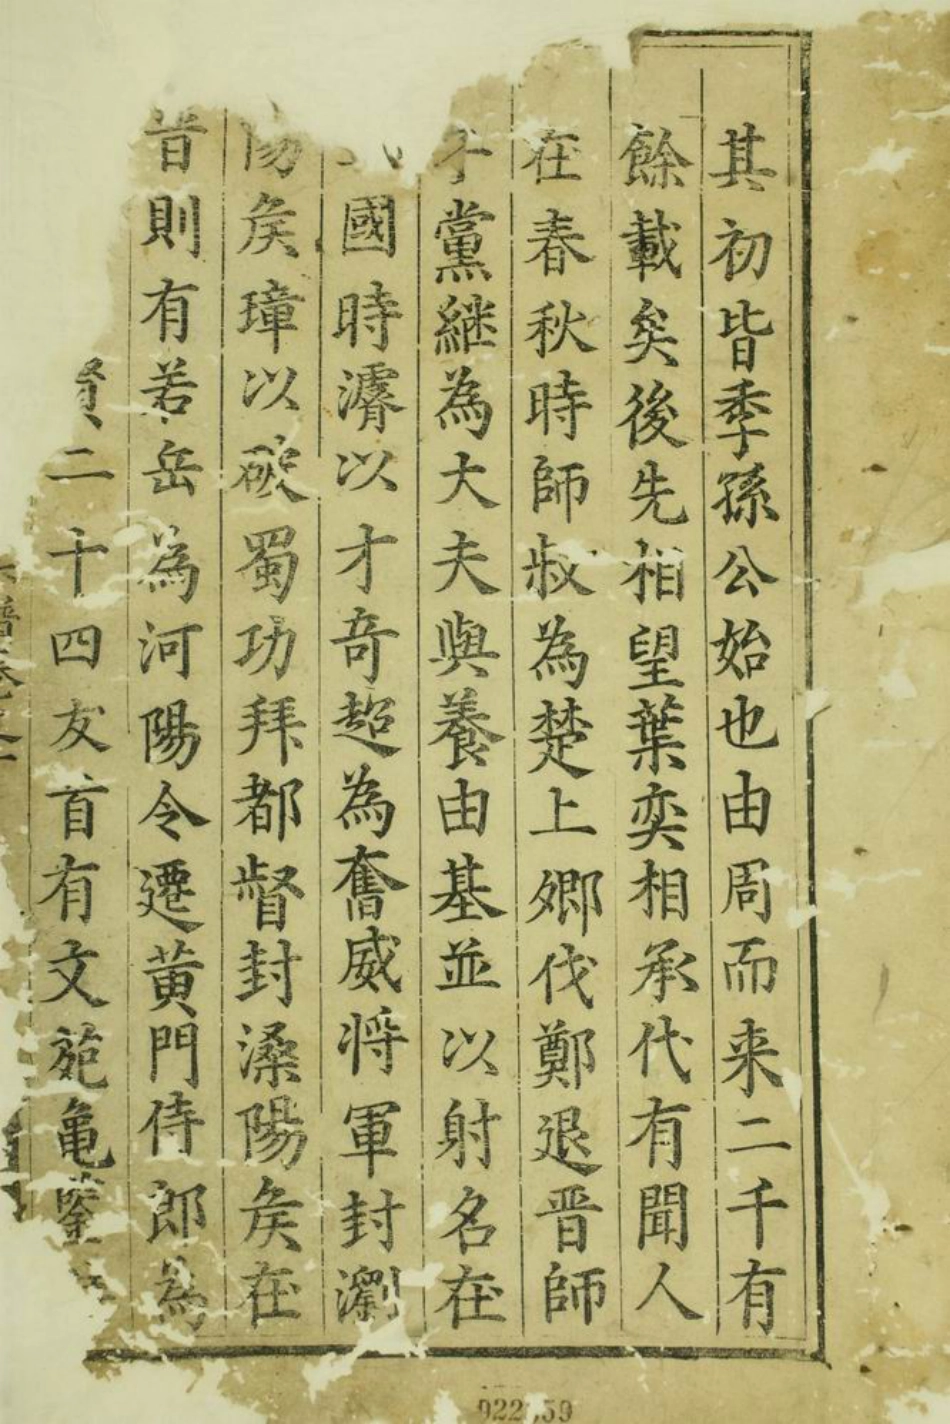 其初皆季孫公始也由周而来二千有
餘載矣後先相望葉奕相承代有聞人
在春秋時師叔為楚上卿伐鄭退晋師
子黨継為大夫與養由基並以射名在
國時濬以才奇超為奮威将軍封瀏
陽矦璋以破蜀功拜都督封溧陽矦在
晋則有若岳為河陽令遷黄門侍郎為
賢二十四友首有文苑亀鑒
譜卷之一
022.59